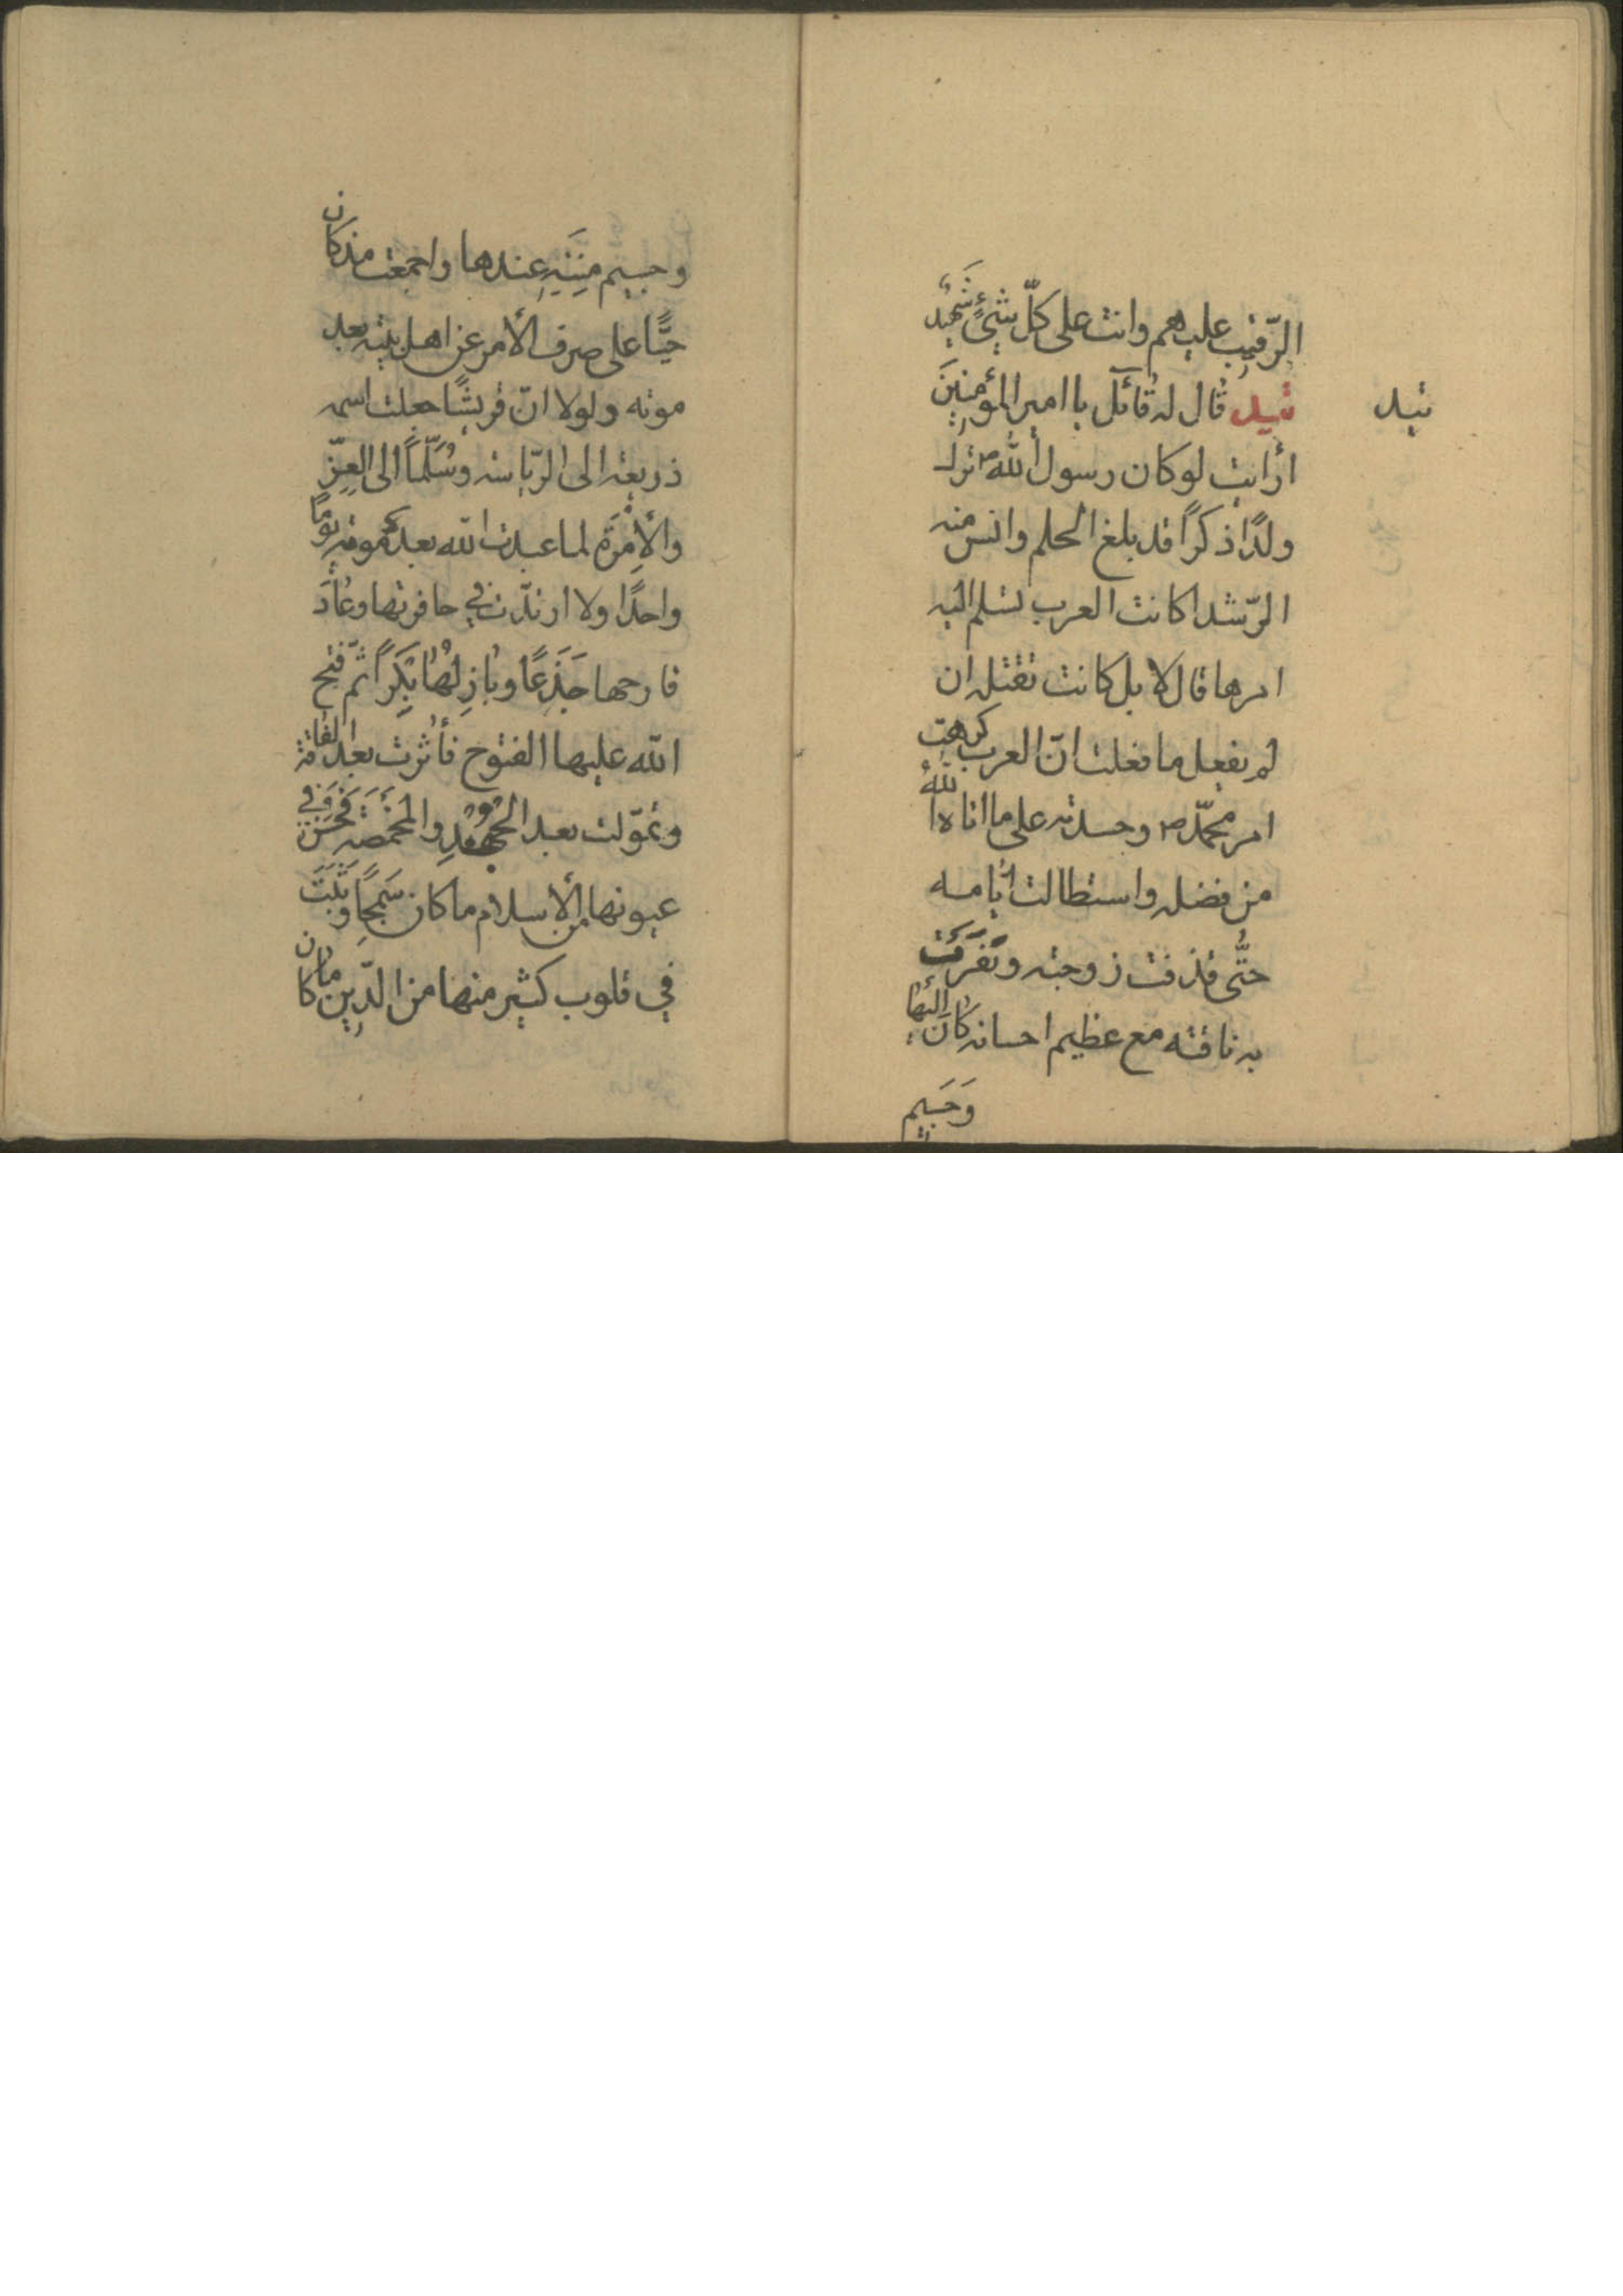 الرّقيب عليهم وانت على كلّ شئٍ شَهيد
قيل
قيل قال له قآئل يا امير المؤمنينَ
ارأيت لو كان رسول الله ص ترك
ولدًا ذكرًا قد بلغ الحلم وانس منه
الرّشد اكانت العرب تسلم اليه
امرها قال لا بل كانت تقتله ان
لم يفعل ما فعلت انّ العرب كرهت
امر محمّد ص وحسدته على ما اتاه اللهُ
من فضله واستطالت ايّامه
حتّى قذفت زوجته ونفرَت
به ناقته مع عظيم احسانه كانَ اليها
وَجَسيم
وجسيم مِنَنِهِ عندها واجمعت مذ كان
حيًّا على صرف الأمر عن اهل بيته بعد
موته ولولا انّ قريشًا جعلت اسمه
ذريعة الى الرّياسة وسُلّمًا الى العِزّ
والأِمْرَة لما عبدت الله بعد موته يومًا
واحدًا ولا ارتدّت في حافرتها وعادَ
قارحها جَذَعًا وبازِلُها بَكرًا ثمّ فتح
الله عليها الفتوح فأثرت بعد الفاقة
وتموّلت بعد الجُهْدِ والمخمصة فَحَسُنَ في
عيونها من الأسلام ما كان سَمِجًا وثَبَتَ
في قلوب كثير منها من الدّين ما كان